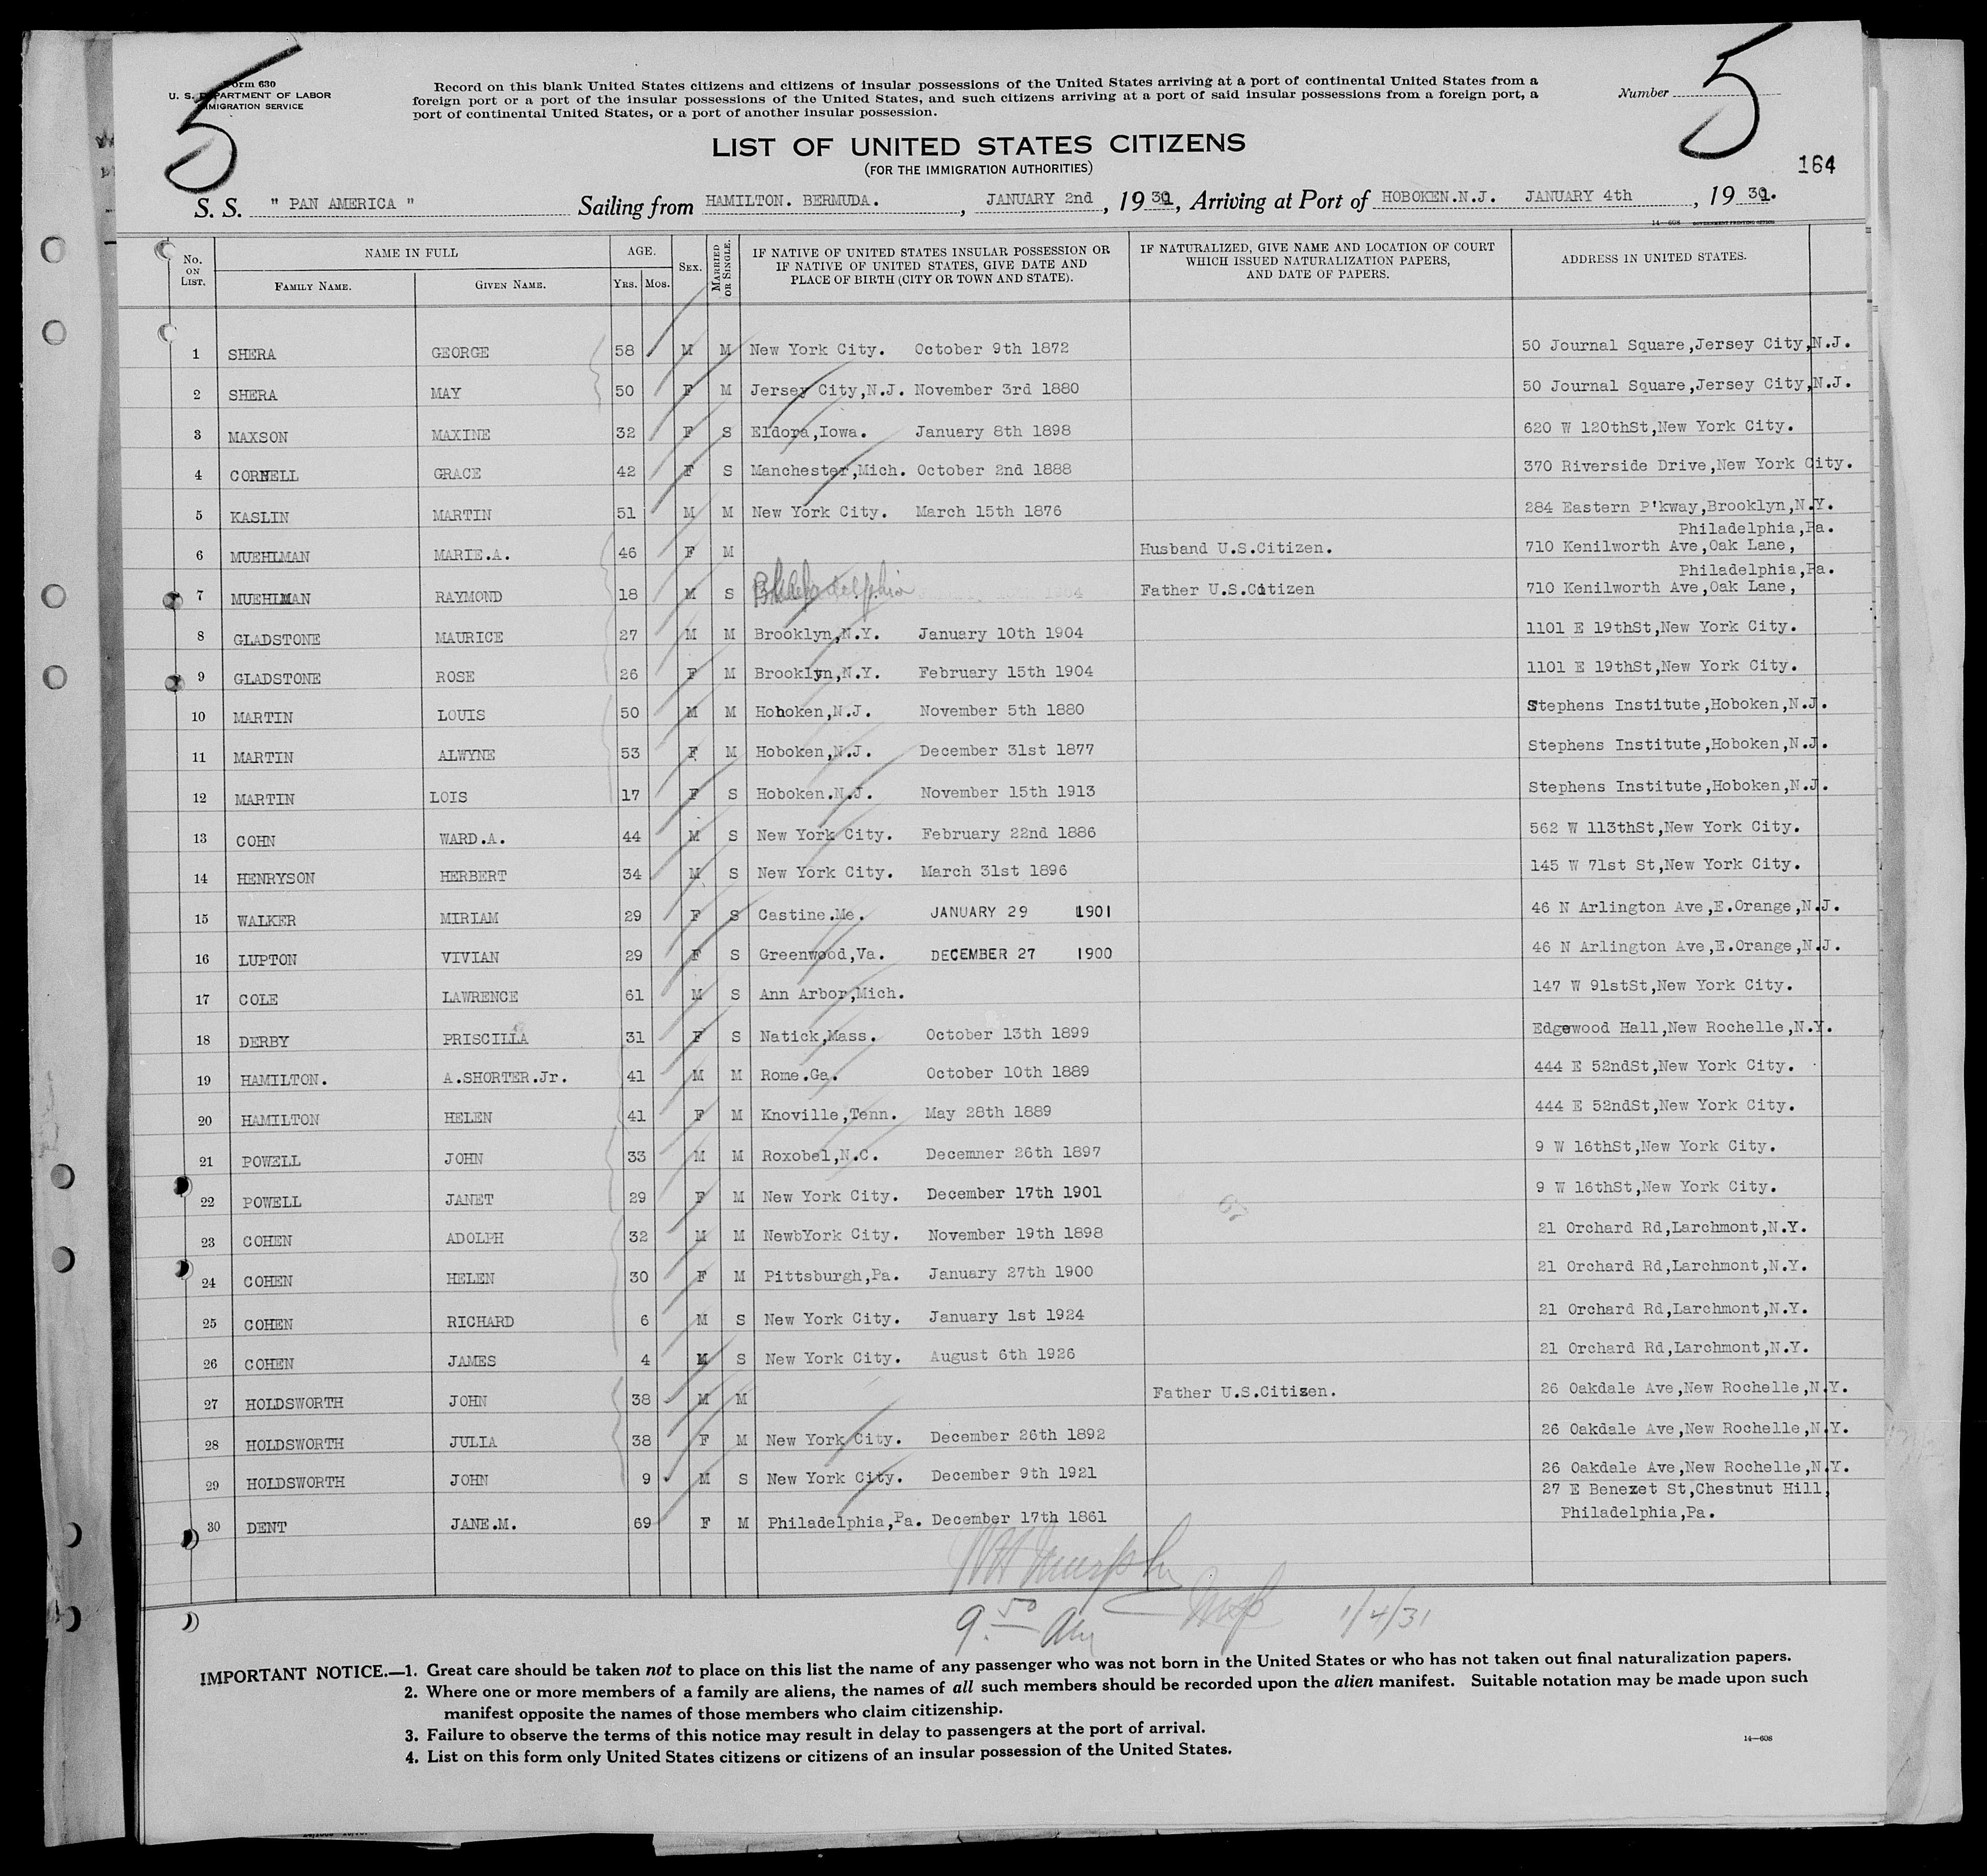 5
5
Form 630
U. S. DEPARTMENT OF LABOR
IMMIGRATION SERVICE
Record on this blank United States citizens and citizens of insular possessions of the United States arriving at a port of continental United States from a
foreign port or a port of the insular possessions of the United States, and such citizens arriving at a port of said insular possessions from a foreign port, a
port of continental United States, or a port of another insular possession.
Number
LIST OF UNITED STATES CITIZENS
(FOR THE IMMIGRATION AUTHORITIES)
164
S. S. " PAN AMERICA " Sailing from HAMILTON. BERMUDA. , JANUARY 2nd , 1931, Arriving at Port of HOBOKEN.N.J. JANUARY 4th , 1931.
14—608 GOVERNMENT PRINTING OFFICE
No. ON LIST. NAME IN FULL AGE. SEX. MARRIED OR SINGLE. IF NATIVE OF UNITED STATES INSULAR POSSESSION OR IF NATIVE OF UNITED STATES, GIVE DATE AND PLACE OF BIRTH (CITY OR TOWN AND STATE). IF NATURALIZED, GIVE NAME AND LOCATION OF COURT WHICH ISSUED NATURALIZATION PAPERS, AND DATE OF PAPERS. ADDRESS IN UNITED STATES.
FAMILY NAME. GIVEN NAME. YRS. MOS.
1 SHERA GEORGE 58 M M New York City. October 9th 1872 50 Journal Square,Jersey City,N.J.
2 SHERA MAY 50 F M Jersey City,N.J. November 3rd 1880 50 Journal Square,Jersey City,N.J.
3 MAXSON MAXINE 32 F S Eldora,Iowa. January 8th 1898 620 W 120thSt,New York City.
4 CORNELL GRACE 42 F S Manchester,Mich. October 2nd 1888 370 Riverside Drive,New York City.
5 KASLIN MARTIN 51 M M New York City. March 15th 1876 284 Eastern P'kway,Brooklyn,N.Y.
Philadelphia,Pa.
6 MUEHLMAN MARIE.A. 46 F M Husband U.S.Citizen. 710 Kenilworth Ave,Oak Lane,
Philadelphia,Pa.
7 MUEHLMAN RAYMOND 18 M S Philadelphia Father U.S.Citizen 710 Kenilworth Ave,Oak Lane,
8 GLADSTONE MAURICE 27 M M Brooklyn,N.Y. January 10th 1904 1101 E 19thSt,New York City.
9 GLADSTONE ROSE 26 F M Brooklyn,N.Y. February 15th 1904 1101 E 19thSt,New York City.
10 MARTIN LOUIS 50 M M Hoboken,N.J. November 5th 1880 Stephens Institute,Hoboken,N.J.
11 MARTIN ALWYNE 53 F M Hoboken,N.J. December 31st 1877 Stephens Institute,Hoboken,N.J.
12 MARTIN LOIS 17 F S Hoboken.N.J. November 15th 1913 Stephens Institute,Hoboken,N.J.
13 COHN WARD.A. 44 M S New York City. February 22nd 1886 562 W 113thSt,New York City.
14 HENRYSON HERBERT 34 M S New York City. March 31st 1896 145 W 71st St,New York City.
15 WALKER MIRIAM 29 F S Castine.Me. JANUARY 29 1901 46 N Arlington Ave,E.Orange,N.J.
16 LUPTON VIVIAN 29 F S Greenwood,Va. DECEMBER 27 1900 46 N Arlington Ave,E.Orange,N.J.
17 COLE LAWRENCE 61 M S Ann Arbor,Mich. 147 W 91stSt,New York City.
18 DERBY PRISCILLA 31 F S Natick,Mass. October 13th 1899 Edgewood Hall,New Rochelle,N.Y.
19 HAMILTON. A.SHORTER.Jr. 41 M M Rome.Ga. October 10th 1889 444 E 52ndSt,New York City.
20 HAMILTON HELEN 41 F M Knoville,Tenn. May 28th 1889 444 E 52ndSt,New York City.
21 POWELL JOHN 33 M M Roxobel,N.C. Decemner 26th 1897 9 W 16thSt,New York City.
22 POWELL JANET 29 F M New York City. December 17th 1901 9 W 16thSt,New York City.
67
23 COHEN ADOLPH 32 M M NewbYork City. November 19th 1898 21 Orchard Rd,Larchmont,N.Y.
24 COHEN HELEN 30 F M Pittsburgh,Pa. January 27th 1900 21 Orchard Rd,Larchmont,N.Y.
25 COHEN RICHARD 6 M S New York City. January 1st 1924 21 Orchard Rd,Larchmont,N.Y.
26 COHEN JAMES 4 M S New York City. August 6th 1926 21 Orchard Rd,Larchmont,N.Y.
27 HOLDSWORTH JOHN 38 M M Father U.S.Citisen. 26 Oakdale Ave,New Rochelle,N.Y.
28 HOLDSWORTH JULIA 38 F M New York City. December 26th 1892 26 Oakdale Ave,New Rochelle,N.Y.
29 HOLDSWORTH JOHN 9 M S New York City. December 9th 1921 26 Oakdale Ave,New Rochelle,N.Y.
27 E Benezet St,Chestnut Hill,
30 DENT JANE.M. 69 F M Philadelphia,Pa. December 17th 1861 Philadelphia,Pa.
9.50 AM 1/4/31
IMPORTANT NOTICE.—1. Great care should be taken not to place on this list the name of any passenger who was not born in the United States or who has not taken out final naturalization papers.
2. Where one or more members of a family are aliens, the names of all such members should be recorded upon the alien manifest. Suitable notation may be made upon such
manifest opposite the names of those members who claim citizenship.
3. Failure to observe the terms of this notice may result in delay to passengers at the port of arrival.
4. List on this form only United States citizens or citizens of an insular possession of the United States.
14—608